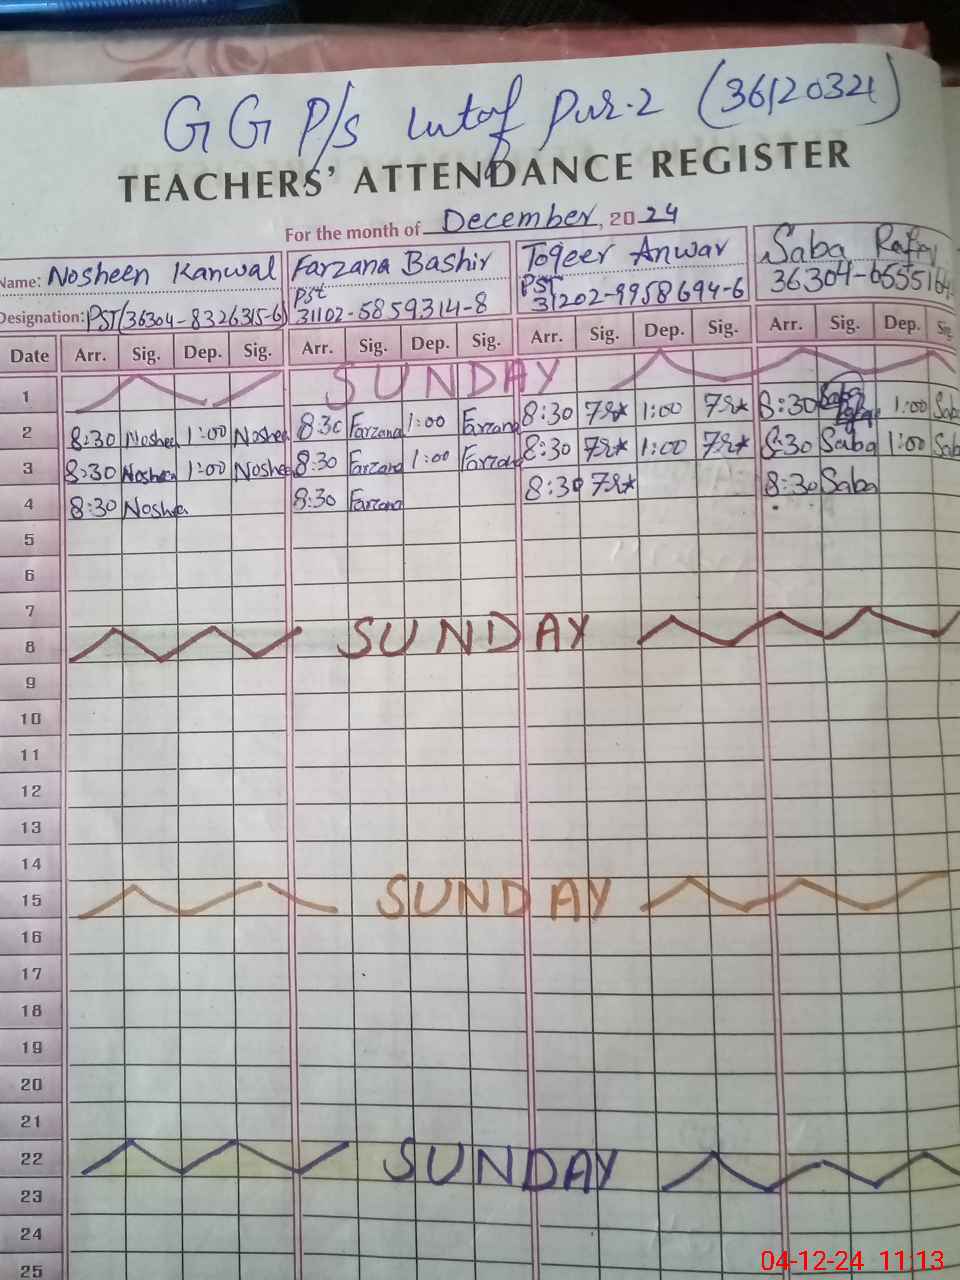 GG P/s Lutaf Pur-2 (36120321)
TEACHERS' ATTENDANCE REGISTER
For the month of December, 2024
Name: Nosheen Kanwal Farzana Bashir Toqeer Anwar Saba
Designation: PST (36304-8326315-6) Pst 31102-5859314-8 PST 31202-9958694-6 36304-6555164-
Date Arr. Sig. Dep. Sig. Arr. Sig. Dep. Sig. Arr. Sig. Dep. Sig. Arr. Sig. Dep. Sig.
1 SUNDAY
2 8:30 Noshee 1:00 Noshee 8:30 Farzana 1:00 Farzana 8:30 1:00 8:30 Saba 1:00 Saba
3 8:30 Nosheen 1:00 Noshee 8:30 Farzana 1:00 Farzana 8:30 1:00 8:30 Saba 1:00 Saba
4 8:30 Noshee 8:30 Farzana 8:30 8:30 Saba
5
6
7
8 SUNDAY
9
10
11
12
13
14
15 SUNDAY
16
17
18
19
20
21
22 SUNDAY
23
24
25
04-12-24 11:13